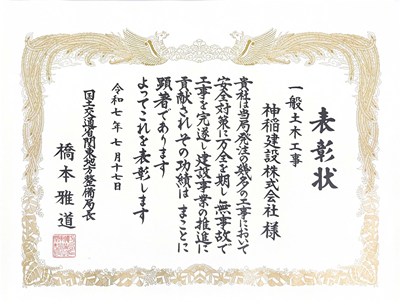 表彰状
一般土木工事
神稲建設株式会社 様
貴社は当局発注の幾多の工事において
安全対策に万全を期し無事故で
工事を完遂し建設事業の推進に
貢献されその功績はまことに
顕著であります
よってこれを表彰します
令和七年七月十七日
国土交通省関東地方整備局長
橋本雅道